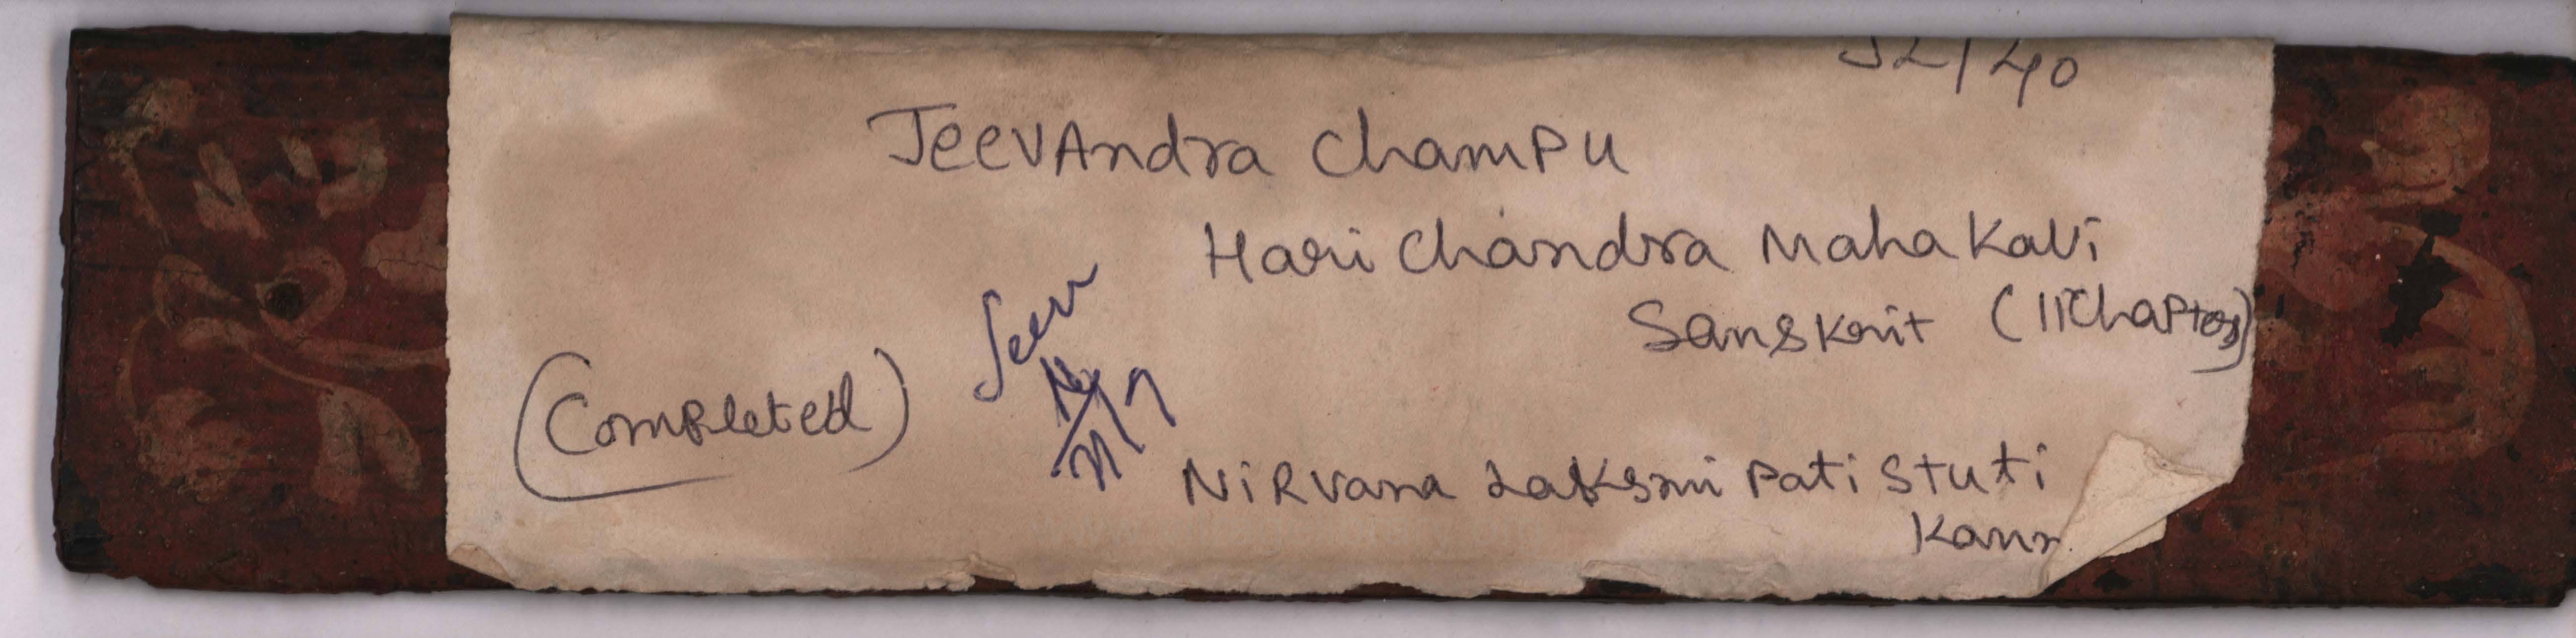 /40
JeevAndra ChamPu
Hari Chandra Maha Kavi
Sanskrit (11Chapters)
Seen
(Completed)
NiRvana Laksmi Pati Stuti